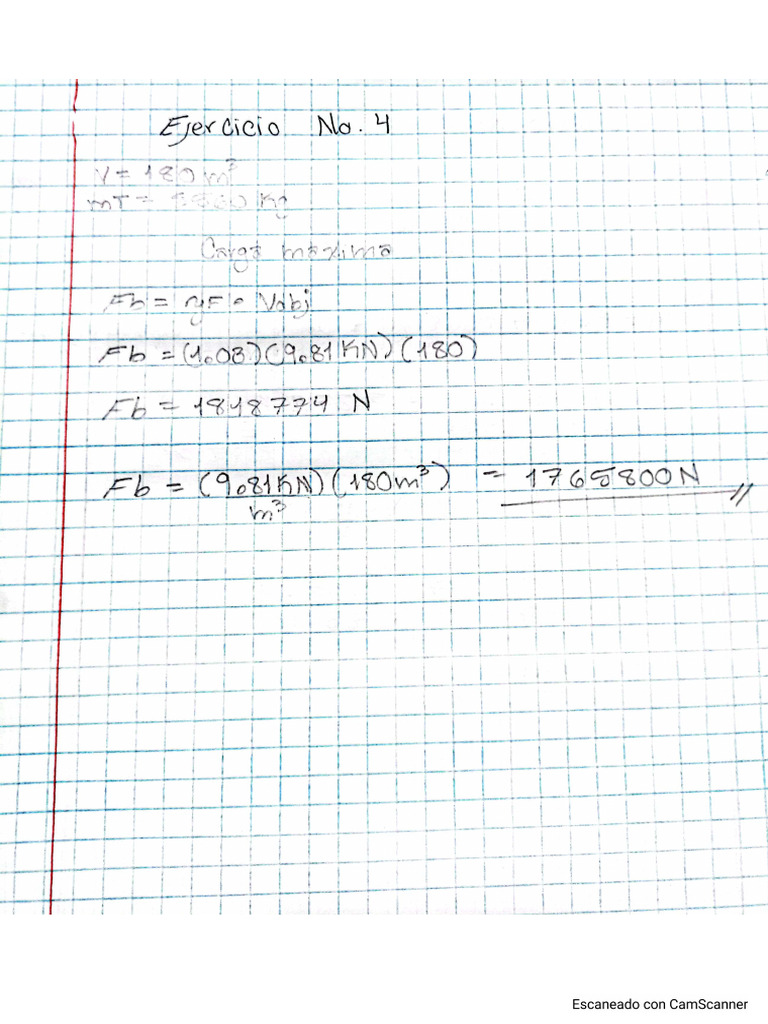 Ejercicio No. 4
V = 180 m³
mT = Kg
Carga maxima
Fb = γF • Vobj
Fb = (1.03)(9.81 KN)(180)
Fb = 1818774 N
Fb = (9.81KN/m³)(180m³) = 1765800N
Escaneado con CamScanner